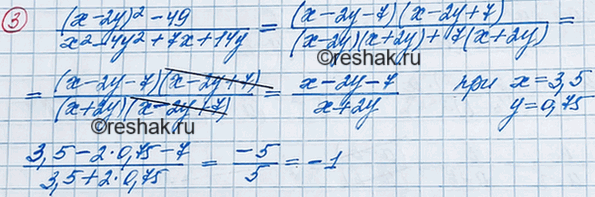 3 ((x-2y)² - 49)/(x² - 4y² + 7x + 14y) = ((x-2y-7)(x-2y+7))/((x-2y)(x+2y)+7(x+2y)) =
= ((x-2y-7)(x-2y+7))/((x+2y)(x-2y+7)) = (x-2y-7)/(x+2y) при x=3,5
y=0,75
©reshak.ru
©reshak.ru
(3,5-2·0,75-7)/(3,5+2·0,75) = -5/5 = -1